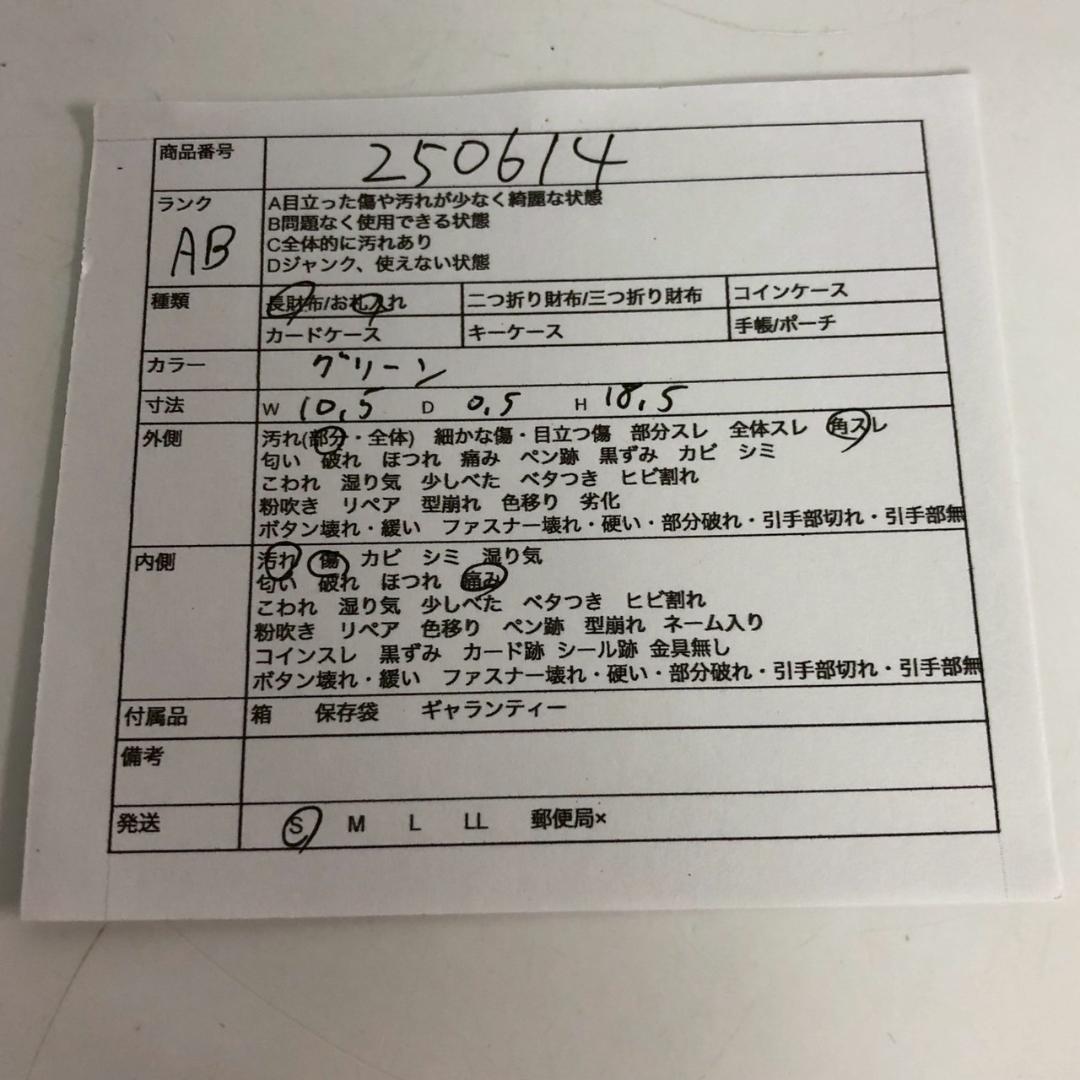 商品番号 250614
ランク A目立った傷や汚れが少なく綺麗な状態
AB B問題なく使用できる状態
C全体的に汚れあり
Dジャンク、使えない状態
種類 長財布/お札入れ 二つ折り財布/三つ折り財布 コインケース
カードケース キーケース 手帳/ポーチ
カラー グリーン
寸法 W 10,5 D 0,5 H 18,5
外側 汚れ(部分・全体) 細かな傷・目立つ傷 部分スレ 全体スレ 角スレ
匂い 破れ ほつれ 痛み ペン跡 黒ずみ カビ シミ
こわれ 湿り気 少しべた ベタつき ヒビ割れ
粉吹き リペア 型崩れ 色移り 劣化
ボタン壊れ・緩い ファスナー壊れ・硬い・部分破れ・引手部切れ・引手部無
内側 汚れ 傷 カビ シミ 湿り気
匂い 破れ ほつれ 痛み
こわれ 湿り気 少しべた ベタつき ヒビ割れ
粉吹き リペア 色移り ペン跡 型崩れ ネーム入り
コインスレ 黒ずみ カード跡 シール跡 金具無し
ボタン壊れ・緩い ファスナー壊れ・硬い・部分破れ・引手部切れ・引手部無
付属品 箱 保存袋 ギャランティー
備考
発送 S M L LL 郵便局×